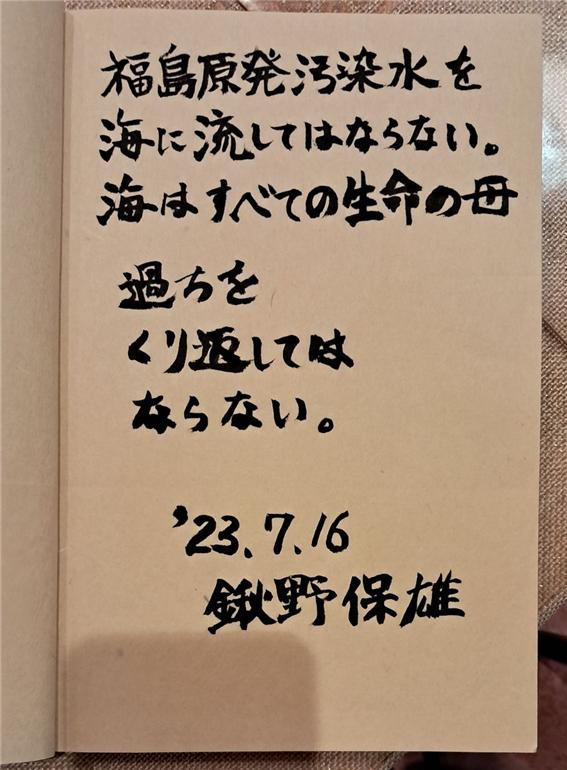 福島原発汚染水を
海に流してはならない。
海はすべての生命の母
過ちを
くり返しては
ならない。
'23.7.16
鍬野保雄